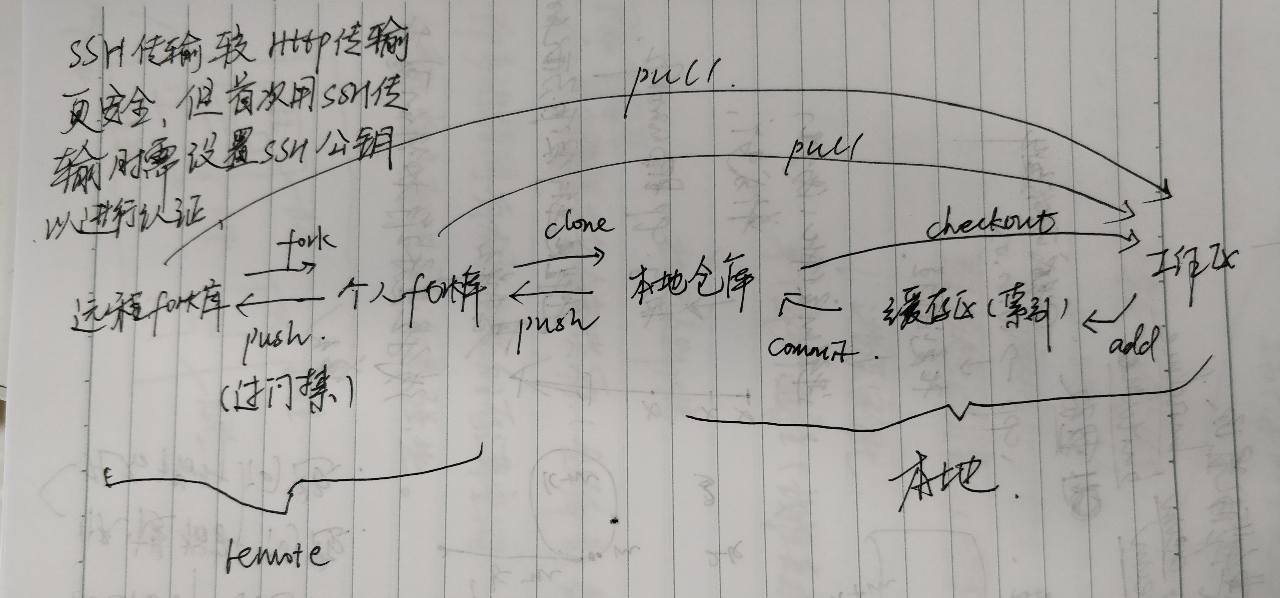 SSH传输较Http传输
更安全，但首次用SSH传
输时需设置SSH公钥
以进行认证.
pull.
pull
fork
clone
checkout
远程fork库
个人fork库
本地仓库
缓存区(索引)
工作区
push.
push
commit.
add
(过门禁)
本地.
remote